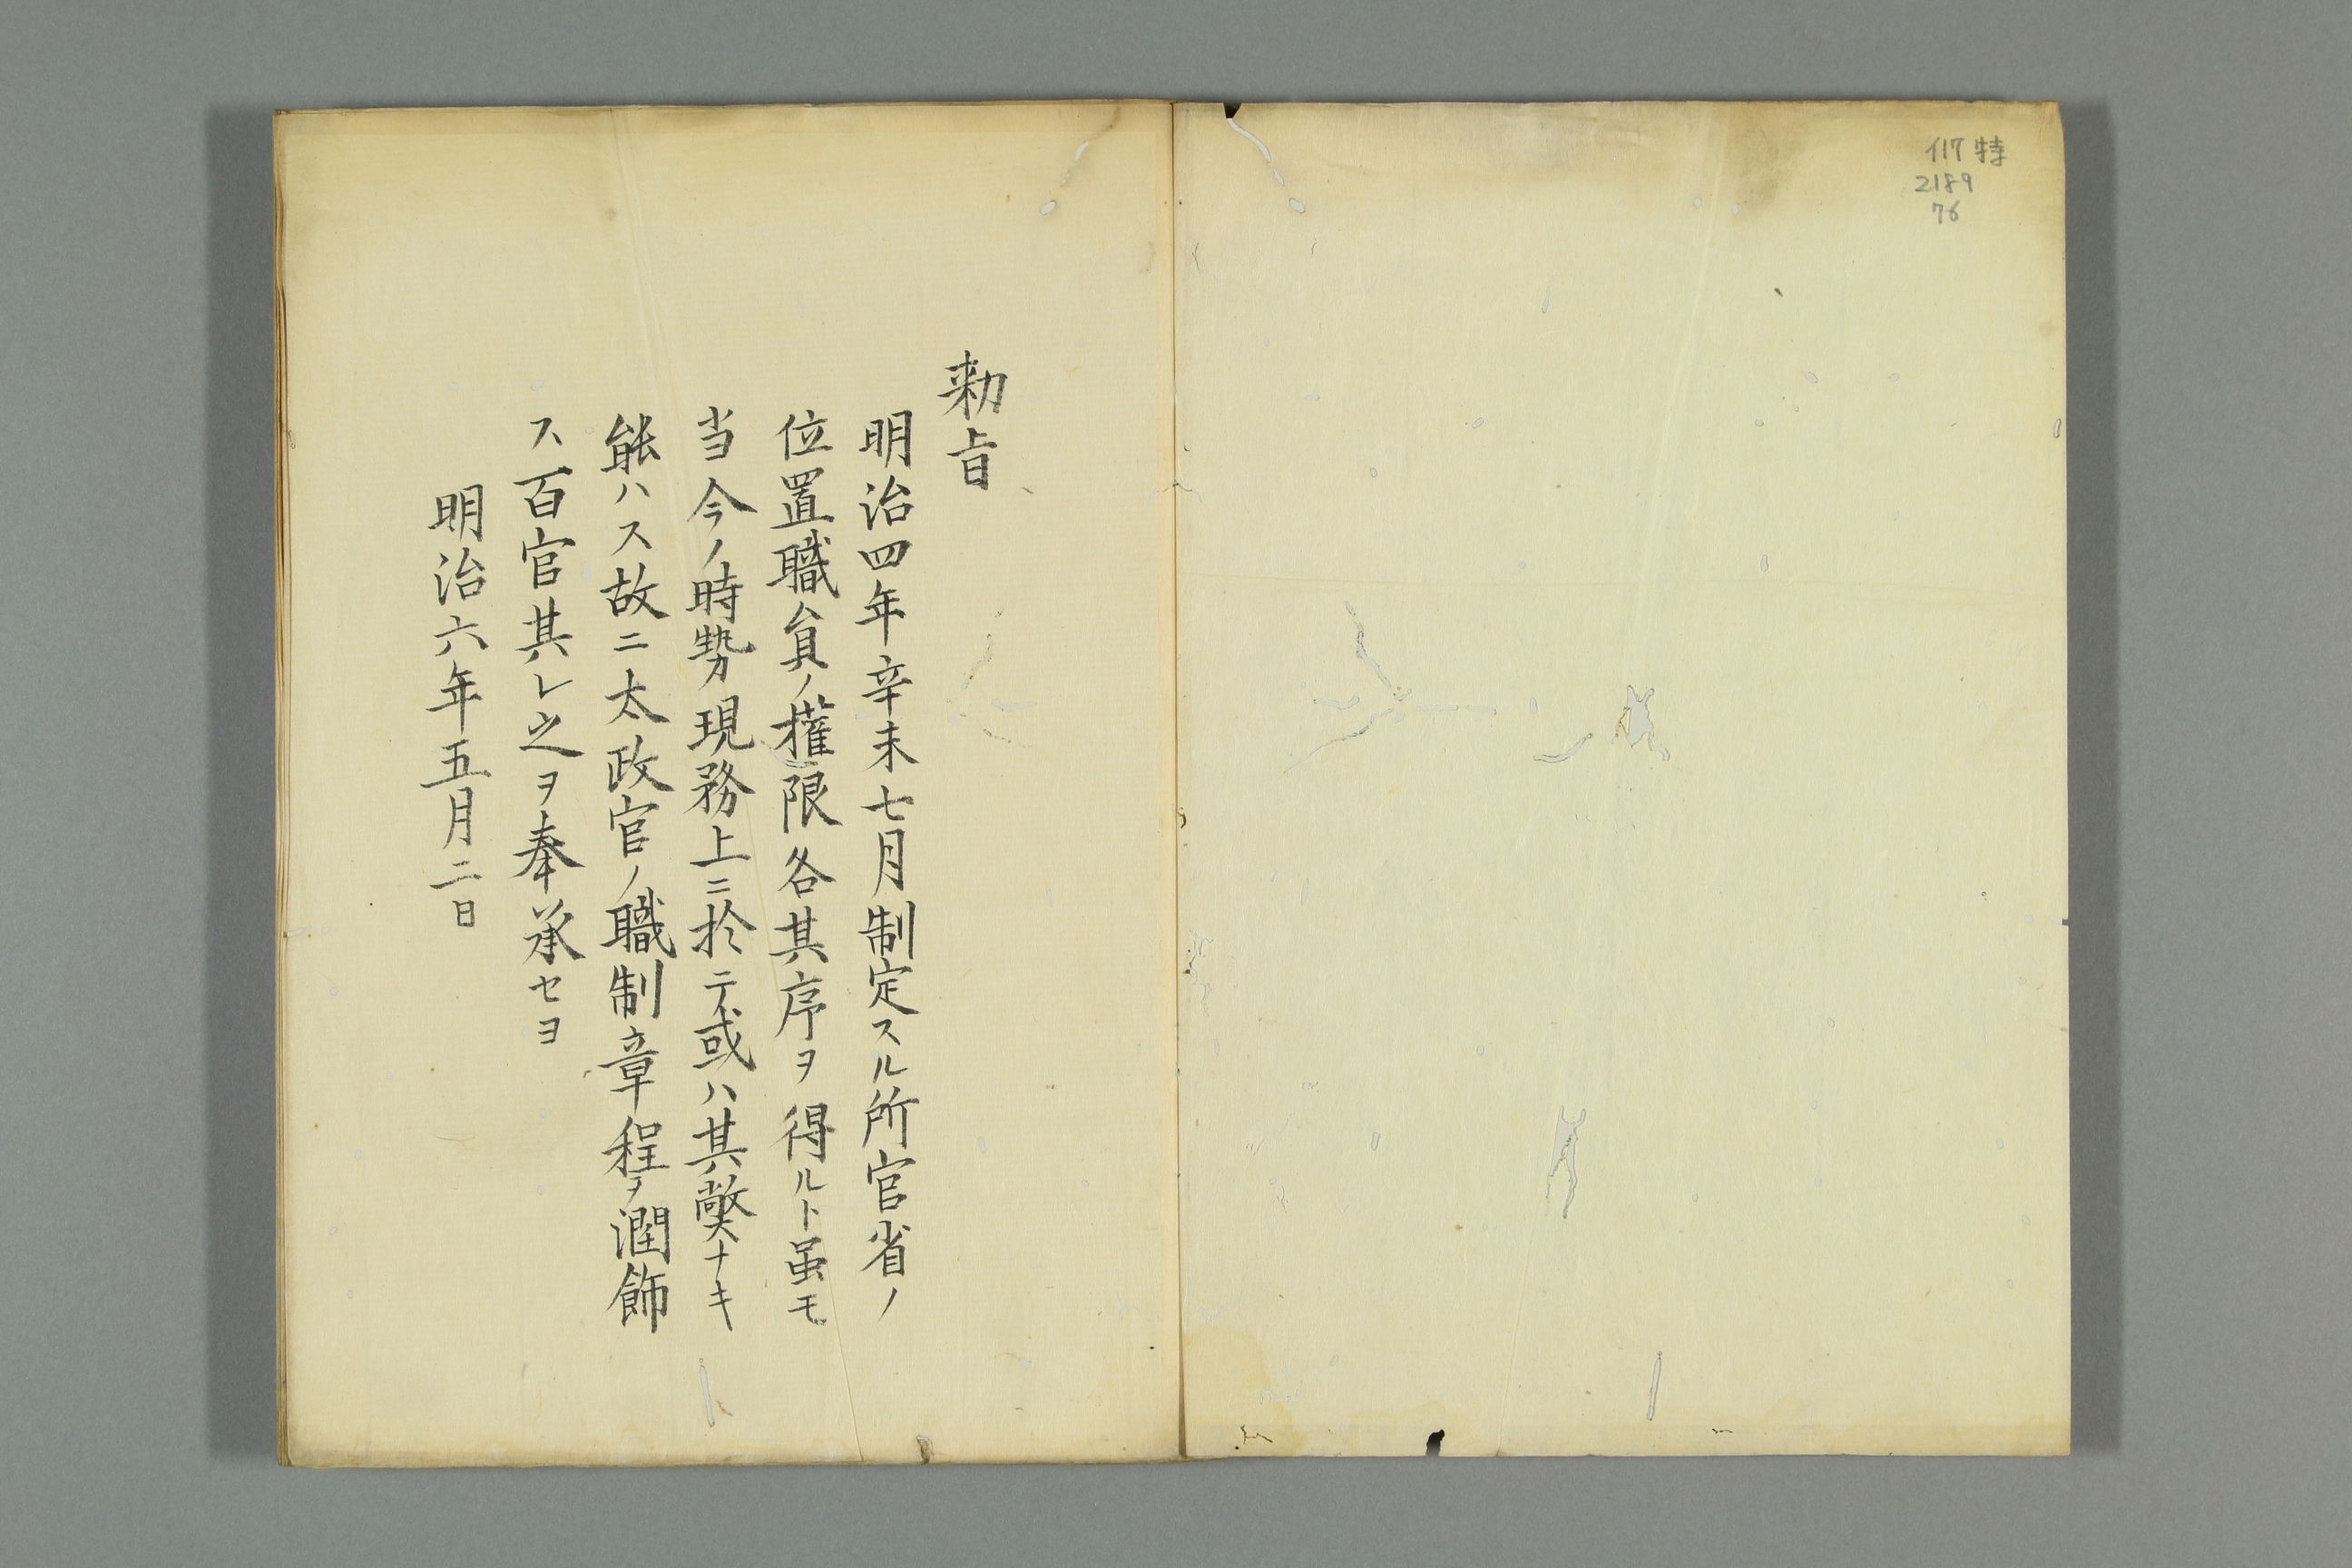 イ17 特
2189
76
勅旨
明治四年辛未七月制定スル所官省ノ
位置職員ノ権限各其序ヲ得ルト虽モ
当今ノ時勢現務上ニ於テ或ハ其弊ナキ
能ハス故ニ太政官ノ職制章程ヲ潤飾
ス百官其レ之ヲ奉承セヨ
明治六年五月二日